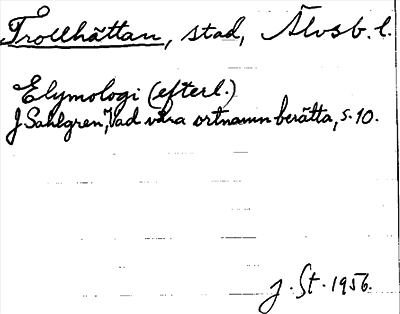 Trollhättan, stad, Älvsb. l.
Etymologi (efterl.)
J Sahlgren, Vad våra ortnamn berätta, s. 10.
J. St. 1956.